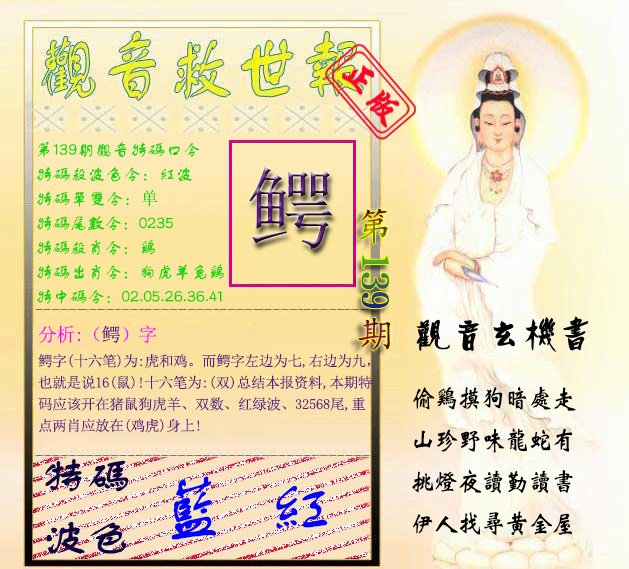 觀音救世報
正版
第139期觀音特碼口令
特碼殺波色令：紅波
特碼單雙令：单
特碼尾數令：0235
特碼殺肖令：鷄
特碼出肖令：狗虎羊兔鷄
特中碼令：02.05.26.36.41
鳄
第139期
分析:（鳄）字
鳄字(十六笔)为:虎和鸡。而鳄字左边为七,右边为九，
也就是说16(鼠)!十六笔为:(双)总结本报资料,本期特
码应该开在猪鼠狗虎羊、双数、红绿波、32568尾,重
点两肖应放在(鸡虎)身上!
特碼
波色
藍 紅
觀音玄機書
偷鷄摸狗暗處走
山珍野味龍蛇有
挑燈夜讀勤讀書
伊人找尋黄金屋